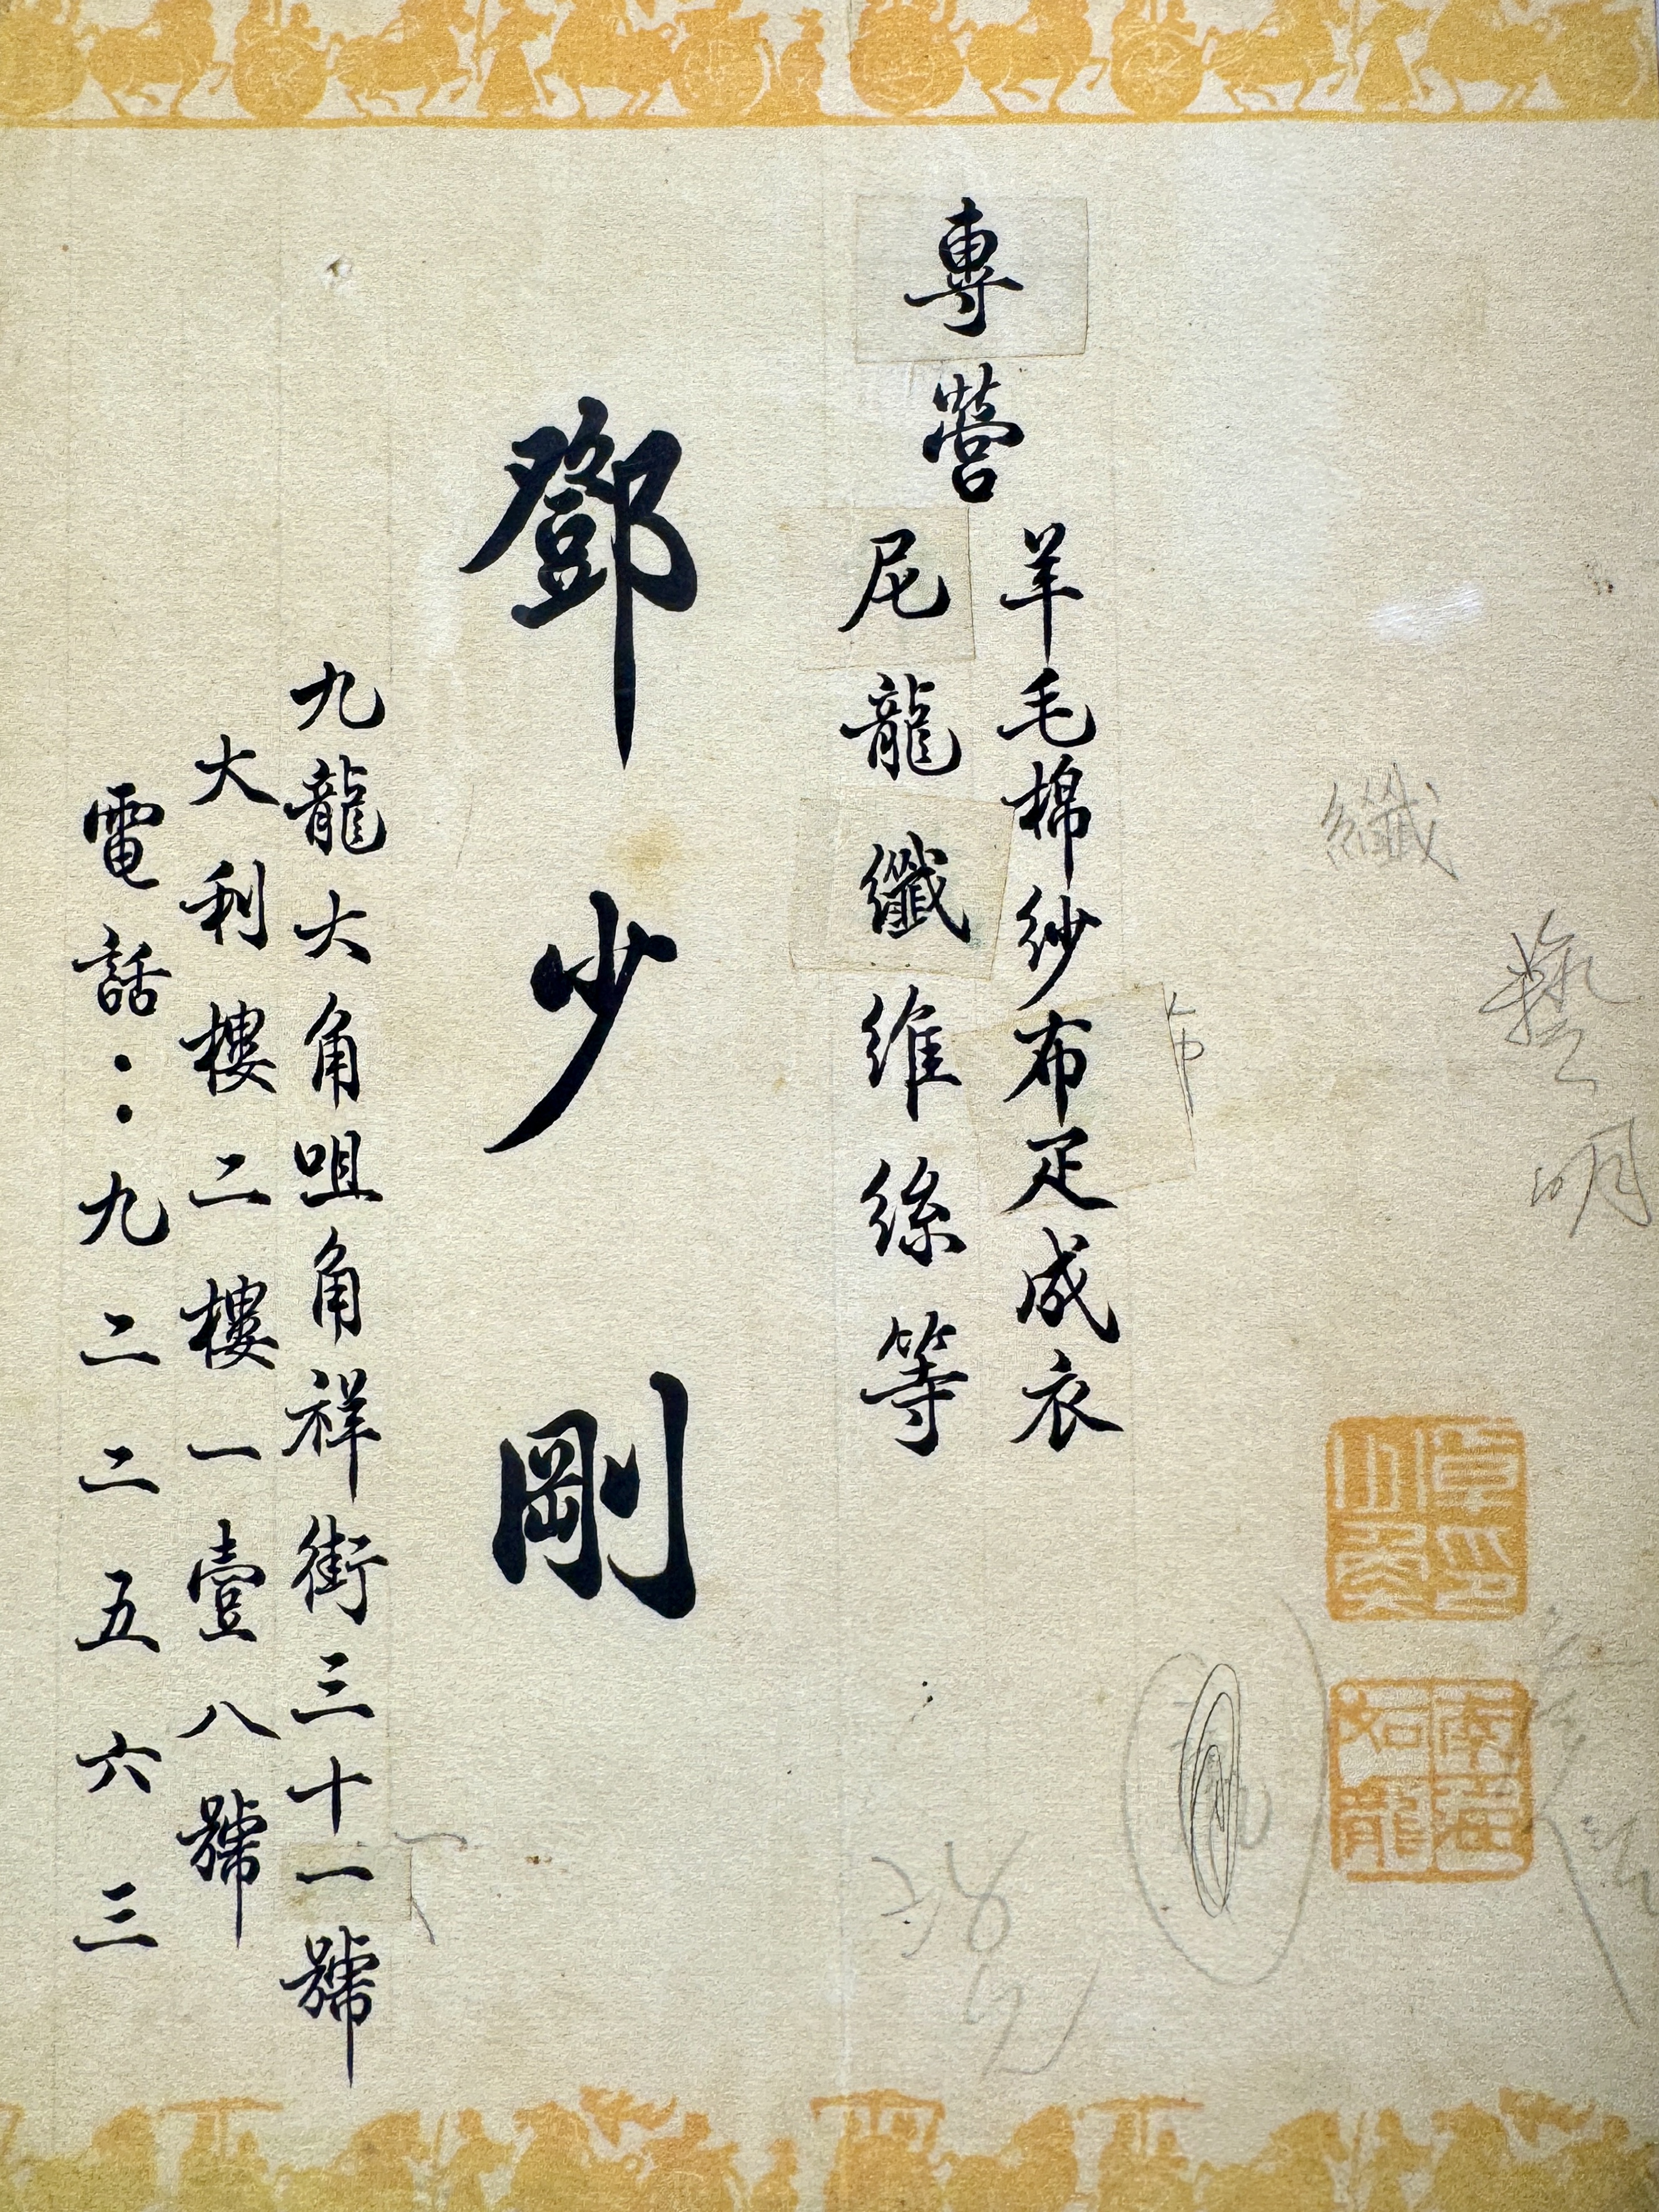 專營
羊毛棉紗布疋成衣
尼龍纖維絲等
鄧少剛
九龍大角咀角祥街三十一號
大利樓二樓一壹八號
電話：九二二五六三
纖
藝
明
布